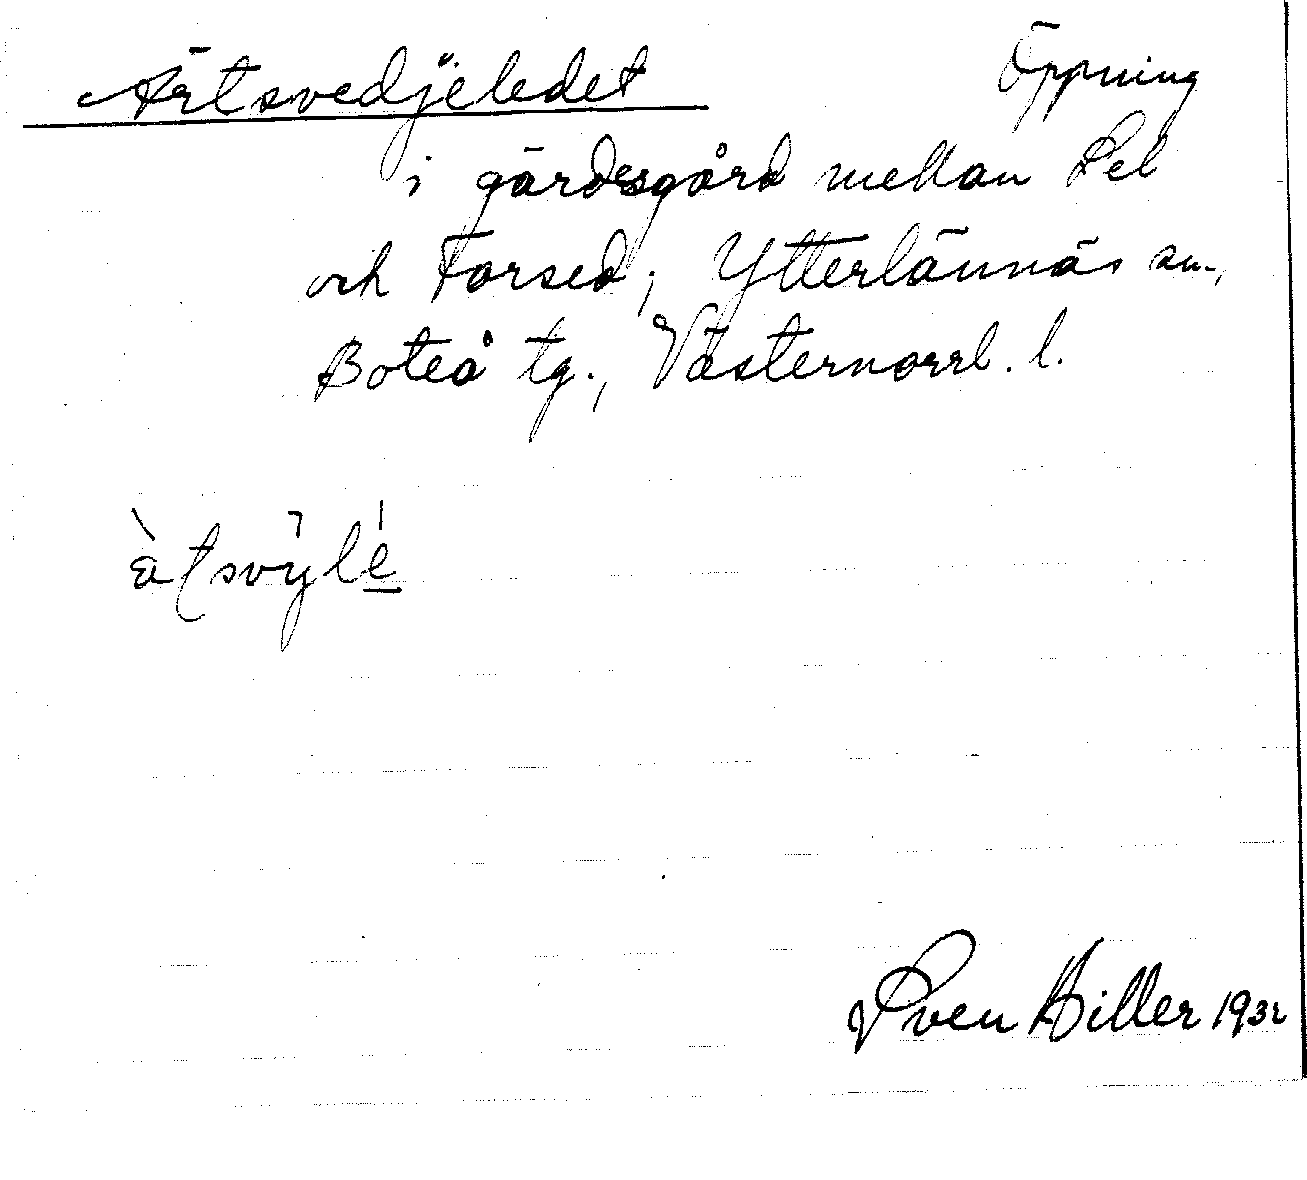 Ärtsvedjeledet Öppning
i gärdesgård mellan Lel
och Forsed, Ytterlännäs sn.,
Boteå tg., Västernorrl. l.
Sven Hiller 1932